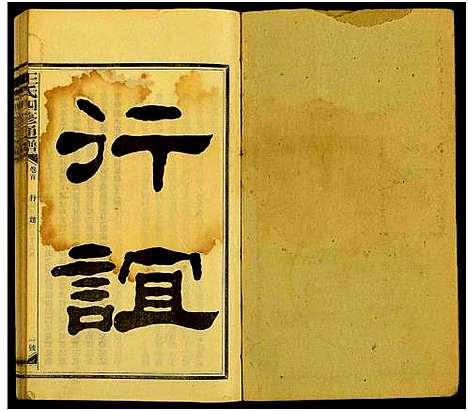 行
誼
王氏四修通譜
卷首
行誼
一號